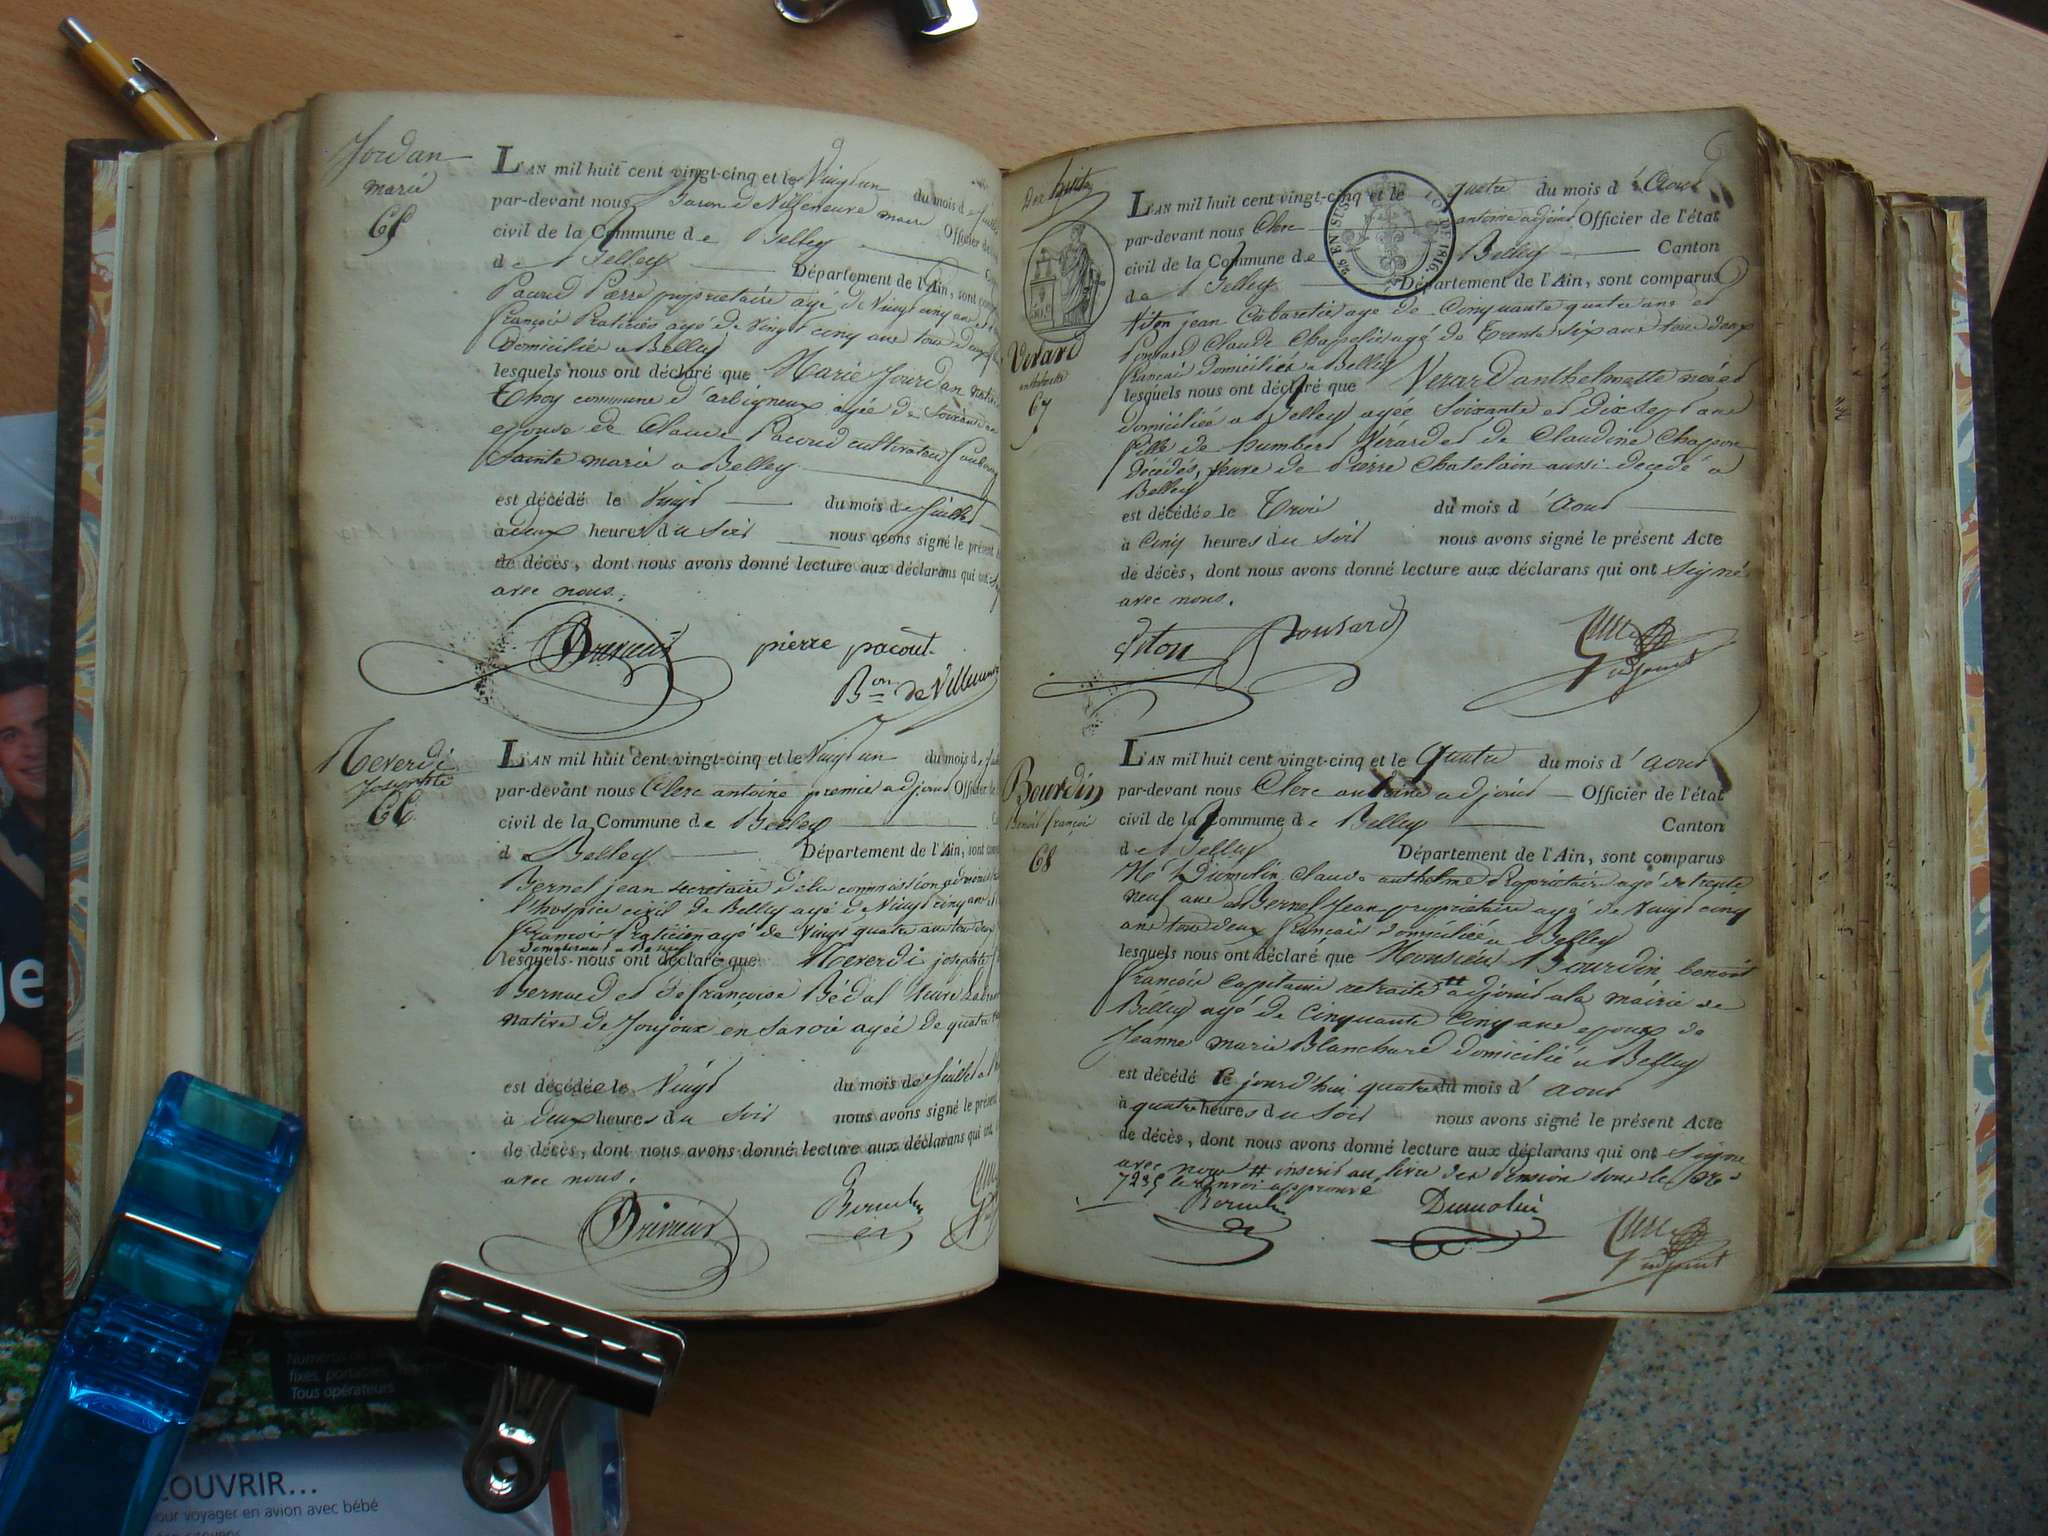 Jordan
marie
65
L'AN mil huit cent vingt-cinq et le Vingt un du mois de Juillet
par-devant nous Baron de Villeneuve maire Officier de
civil de la Commune de Belley
de Belley Département de l'Ain, sont comp
Pacoud Pierre propriétaire agé de Vingt cinq ans et
françois Praticien agé de Vingt cinq ans tous deux
Domicilié a Belley
lesquels nous ont déclaré que Marie Jourdan native
Thoy commune d'arbigneux agée de Soixante
epouse de Claude Pacoud cultivateur faubourg
Sainte marie a Belley
est décédé le Vingt du mois de Juillet
à deux heures du Soir nous avons signé le présent
de décès, dont nous avons donné lecture aux déclarans qui ont
avec nous.
pierre pacout
Bon de Villeneuve
Reverdi
Josephte
66
L'AN mil huit cent vingt-cinq et le Vingt un du mois de
par-devant nous Clerc antoine premier adjoint Officier
civil de la Commune de Belley
de Belley Département de l'Ain, sont comp
Bernel jean secretaire de la commission
l'hospice civil de Belley agé de Vingt cinq ans
françois Praticien agé de Vingt quatre ans tous deux
demeurant a Belley
lesquels nous ont déclaré que Reverdi josephte
Bernard et de françoise Bédat Veuve
native de Joujoux en Savoie agée de quatre
est décédée le Vingt du mois de Juillet
à Deux heures du Soir nous avons signé le présent
de décès, dont nous avons donné lecture aux déclarans qui ont
avec nous.
L'AN mil huit cent vingt-cinq et le quatre du mois d'Aout
par-devant nous Clerc antoine adjoint Officier de l'état
civil de la Commune de Belley Canton
de Belley Département de l'Ain, sont comparus
LOI DE 1816.
EN SUS
Verard
anthelmette
67
Viton jean Cabaretier agé de Cinquante quatre ans et
Ponsard Claude Chapelier agé de Trente Six ans tous deux
francais domiciliés a Belley
lesquels nous ont déclaré que Verard anthelmette née et
domiciliée a Belley agée Soixante et dix sept ans
fille de humbert Verard et de Claudine Chapon
décédés, Veuve de Pierre Chatelain aussi decedé a
Belley
est décédée le Trois du mois d'Aout
à Cinq heures du Soir nous avons signé le présent Acte
de décès, dont nous avons donné lecture aux déclarans qui ont Signé
avec nous.
Viton Ponsard
adjoint
Bourdin
Benoit françois
68
L'AN mil huit cent vingt-cinq et le Quatre du mois d'aout
par-devant nous Clerc antoine adjoint Officier de l'état
civil de la Commune de Belley Canton
de Belley Département de l'Ain, sont comparus
Mr Dumolin Claude anthelme Propriétaire agé de trente
neuf ans et Bernel Jean propriétaire agé de Vingt cinq
ans tous deux francais domicilié a Belley
lesquels nous ont déclaré que Monsieur Bourdin benoit
françois Capitaine retraité # adjoint a la mairie de
Belley agé de Cinquante Cinq ans epoux de
Jeanne marie Blanchard domicilié a Belley
est décédé ce jourd'hui quatre du mois d'aout
à quatre heures du Soir nous avons signé le présent Acte
de décès, dont nous avons donné lecture aux déclarans qui ont Signé
avec nous # inscrit au livre des Pension sous le no
7235 le renvoi approuvé
Dumolin
adjoint
ge
Numéros
fixes, portables
Tous opérateurs
COUVRIR...
our voyager en avion avec bébé